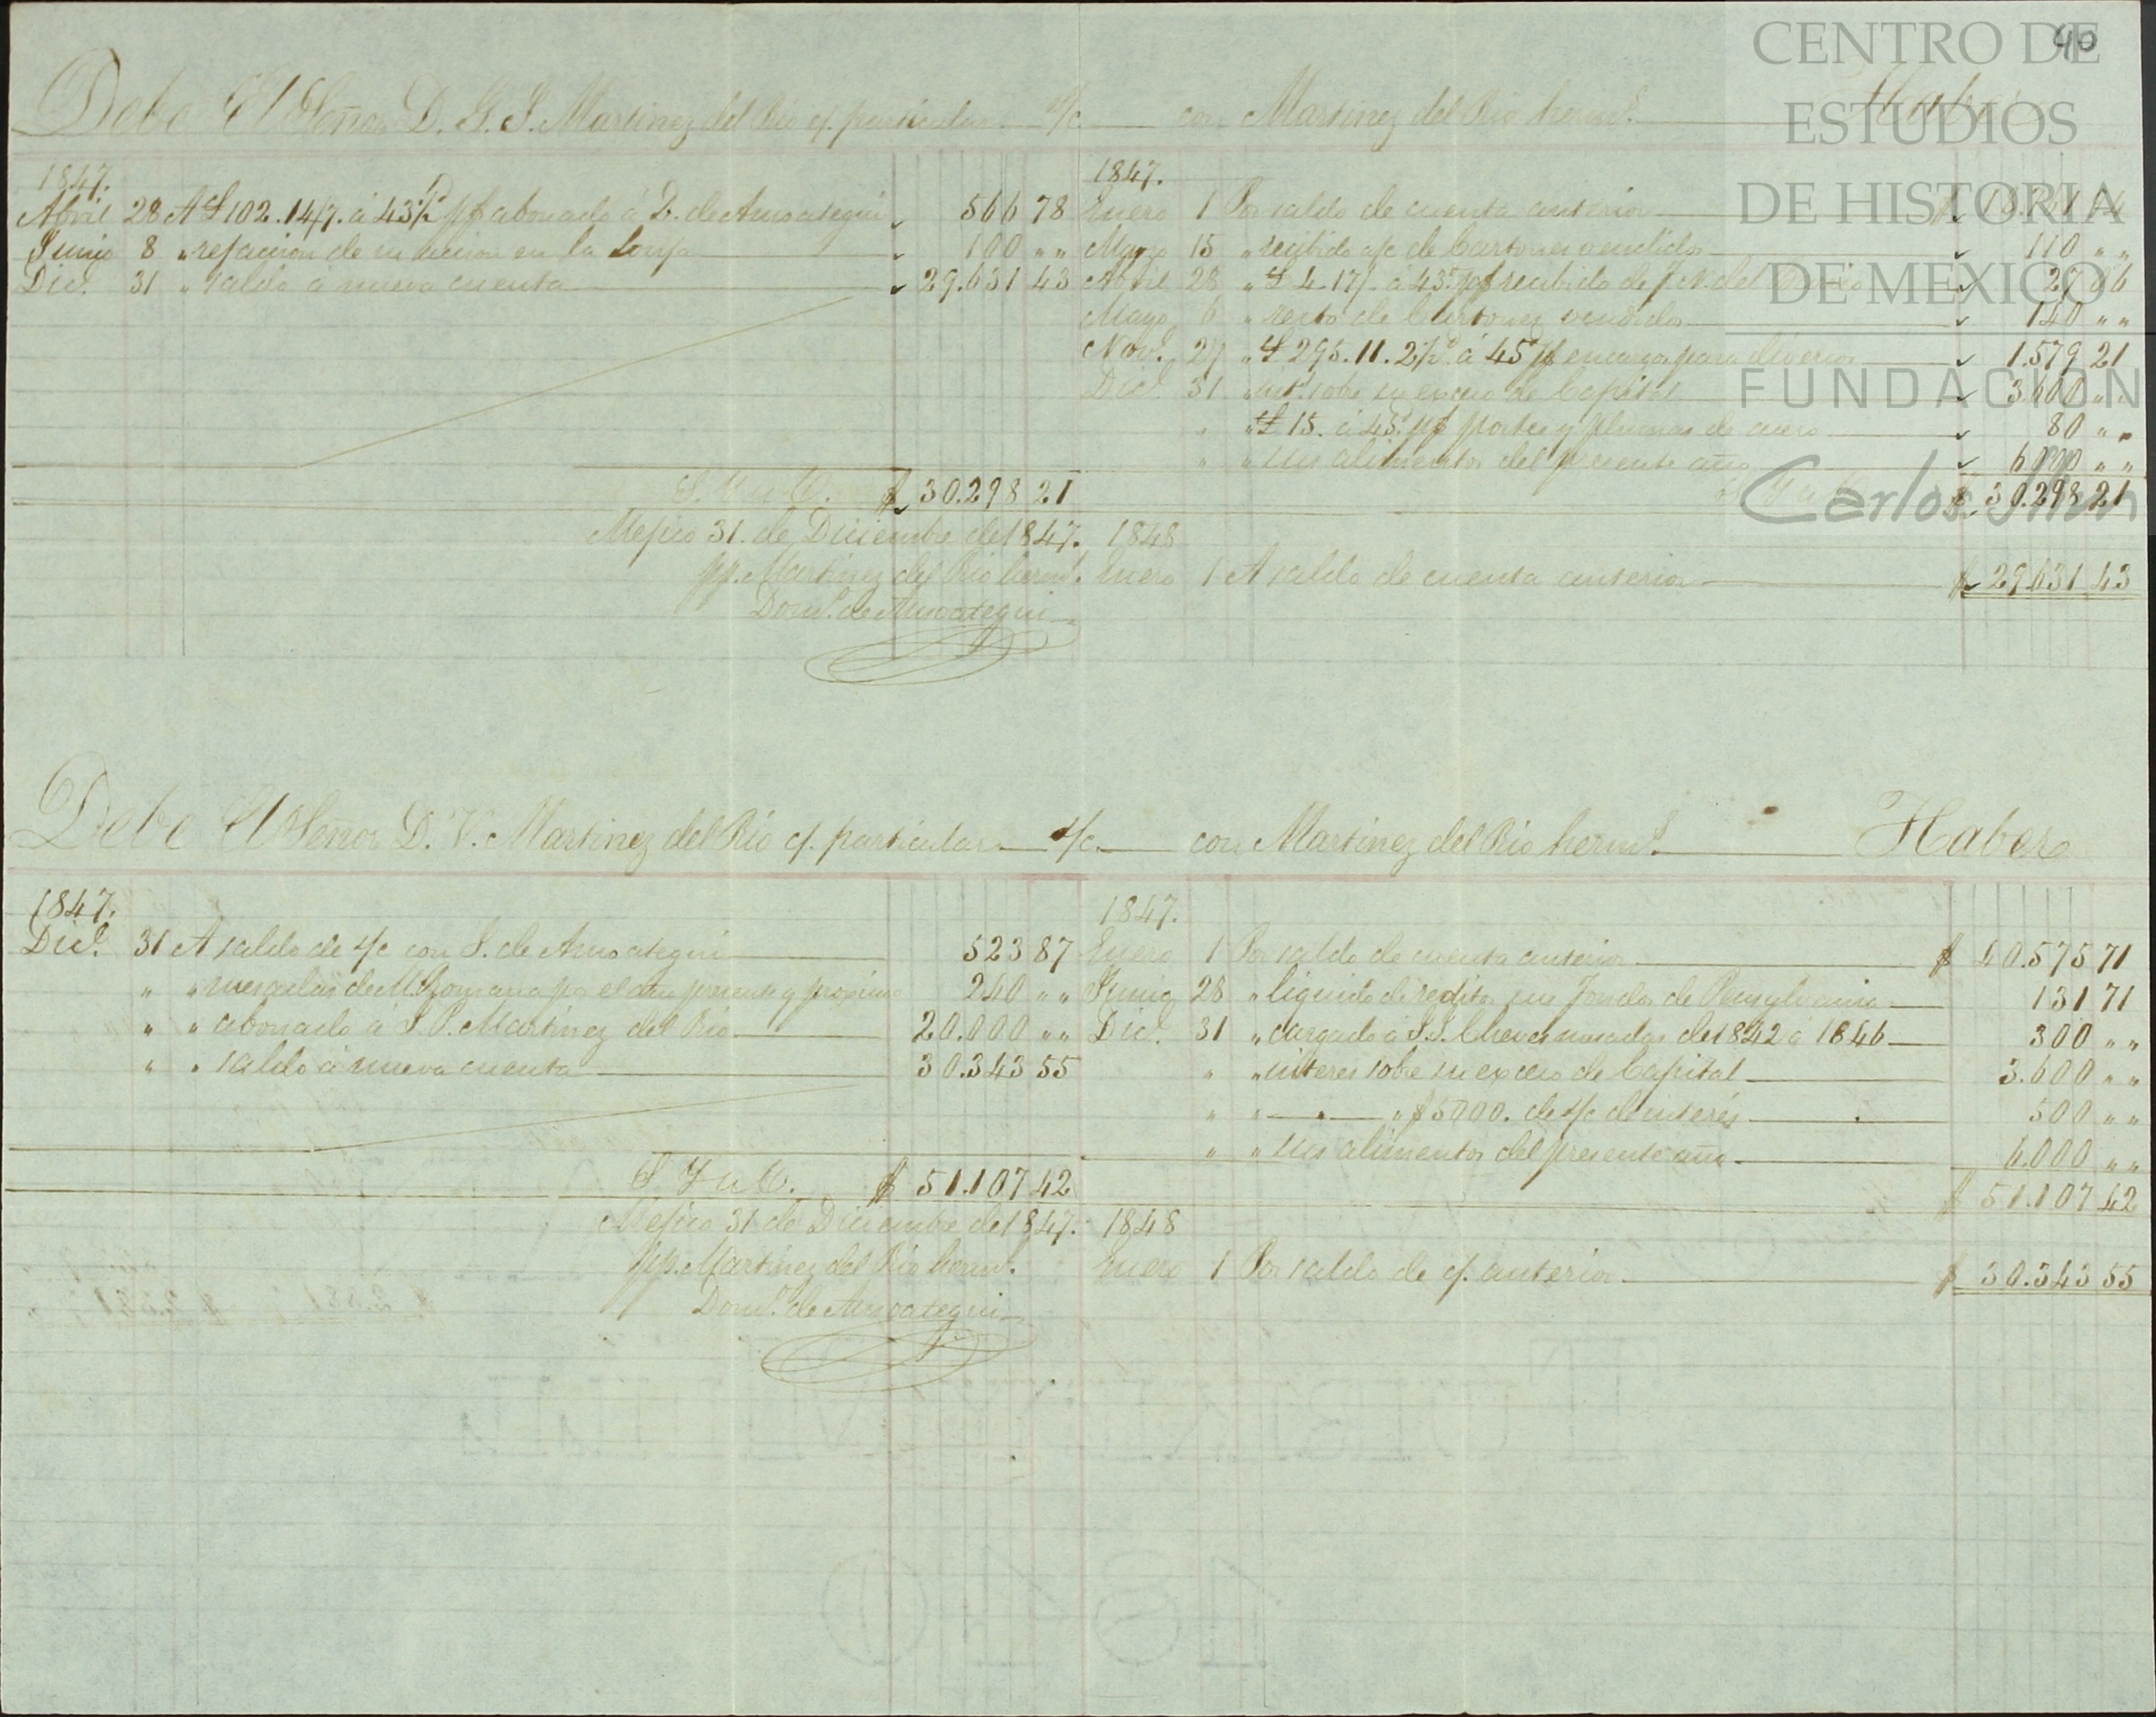 40
CENTRO DE
ESTUDIOS
DE HISTORIA
DE MEXICO
FUNDACION
Carlos Slim
Debe El Señor D. G. J. Martinez del Rio c/. particular s/c con Martinez del Rio herms. Haber
1847.
Abril 28 A £102.14/7. á 43½ p$ abonado á D. de Amoategui 566 78
Junio 8 " refaccion de su accion en la Lonja 100 " "
Dice. 31 " saldo á nueva cuenta 29.631 43
S. Y u O. $ 30.298 21
Mejico 31. de Diciembre de 1847.
pp. Martinez del Rio herms.
Domo. de Amoategui
1847.
Enero 1 Por saldo de cuenta anterior
Marzo 15 " recibido a/c de Cartones vendidos 110 " "
Abril 28 " £ 4.17/. á 43 p$ recibido de del
Mayo 6 " resto de Cartones vendidos 140 " "
Nove. 27 " £ 295.11.2½ á 45 p$ encargos para diversos 1.579 21
Dice. 31 " int. sobre su exceso de Capital 3.600 " "
" " £ 15. á 45. p$ portes y plumas de acero 80 " "
" " sus alimentos del presente año 6000 " "
$ 30.298 21
1848
Enero 1 A saldo de cuenta anterior $ 29.631 43
Debe El Señor D. V. Martinez del Rio c/. particular s/c con Martinez del Rio herms. Haber
1847.
Dice. 31 A saldo de s/c con D. de Amoategui 523 87
" " mesadas de M. Gomara por el año presente y proximo 240 " "
" " abonado á J. P. Martinez del Rio 20.000 " "
" " saldo á nueva cuenta 30.343 55
S. Y u O. $ 51.107 42
Mejico 31 de Diciembre de 1847.
pp. Martinez del Rio herms.
Domo. de Amoategui
1847.
Enero 1 Por saldo de cuenta anterior $ 40.575 71
Junio 28 " liquido de reditos sus Fondos de Pensylvania 131 71
Dice. 31 " cargado á mesadas de 1842 á 1846 300 " "
" " interes sobre su exceso de Capital 3.600 " "
" " — " — " $5000. de s/c de interés 500 " "
" " sus alimentos del presente año 6.000 " "
$ 51.107 42
1848
Enero 1 Por saldo de c/. anterior $ 30.343 55